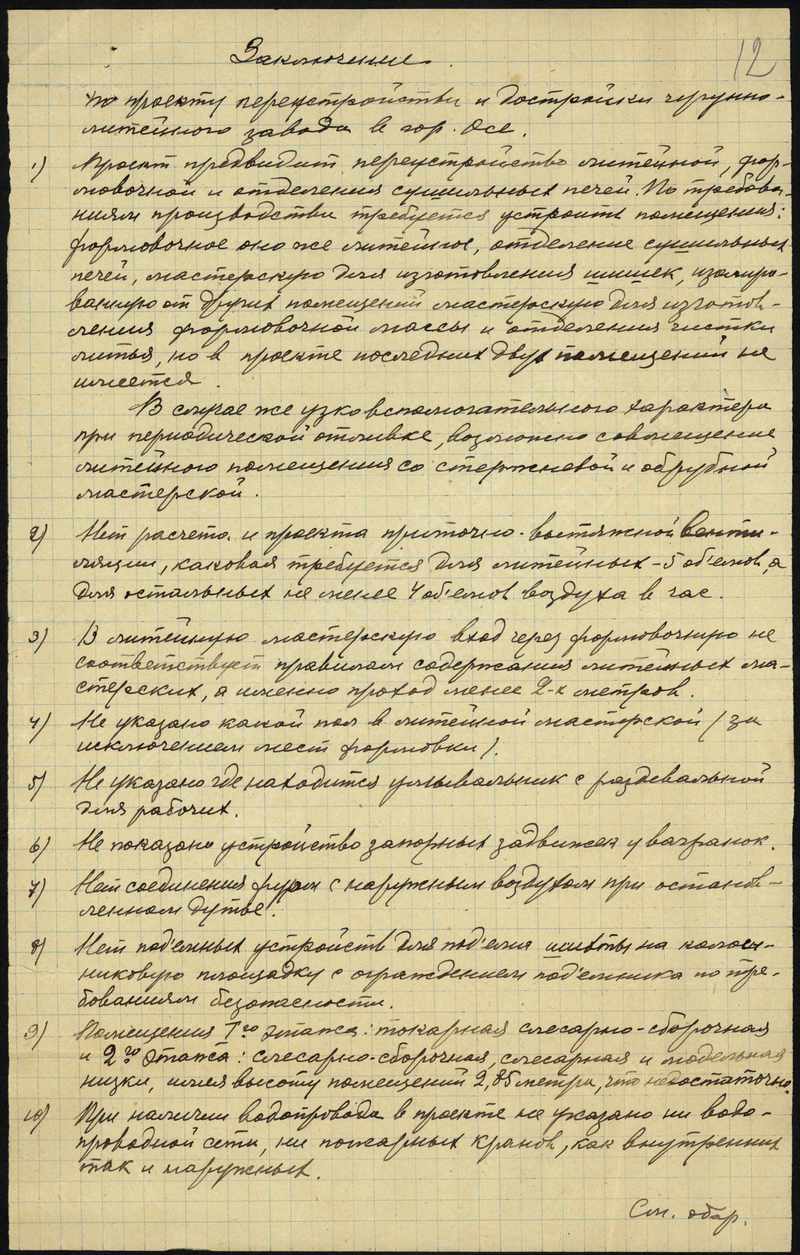 12
Заключение.
по проекту переустройства и достройки чугунно-
литейного завода в гор. Осе.
1) Проект предвидит переустройство литейной, фор-
мовочной и отделения сушильных печей. По требова-
ниям производства требуется устроить помещения:
формовочное оно же литейное, отделение сушильных
печей, мастерскую для изготовления шишек, изолиро-
ванную от других помещений мастерскую для изготов-
ления формовочной массы и отделения чистки
литья, но в проекте последних двух помещений не
имеется.
В случае же узко вспомогательного характера
при периодической отливке, возможно совмещение
литейного помещения со стержневой и обрубной
мастерской.
2) Нет расчета и проекта приточно-вытяжной венти-
ляции, каковая требуется для литейных – 5 об'емов, а
для остальных не менее 4 об'емов воздуха в час.
3) В литейную мастерскую вход через формовочную не
соответствует правилам содержания литейных ма-
стерских, а именно проход менее 2-х метров.
4) Не указано какой пол в литейной мастерской (за
исключением мест формовки).
5) Не указано где находится умывальник с раздевальной
для рабочих.
6) Не показано устройство запорных задвижек у вагранок.
7) Нет соединения фурм с наружным воздухом при останов-
ленном дутье.
8) Нет под'емных устройств для под'ема шихты на колош-
никовую площадку с ограждением под'емника по тре-
бованиям безопасности.
9) Помещения 1го этажа: токарная слесарно-сборочная
и 2го этажа: слесарно-сборочная, слесарная и модельная
низки, имея высоту помещений 2,85 метра, что недостаточно.
10) При наличии водопровода в проекте не указано ни водо-
проводной сети, ни пожарных кранов, как внутренних
так и наружных.
См. обор.